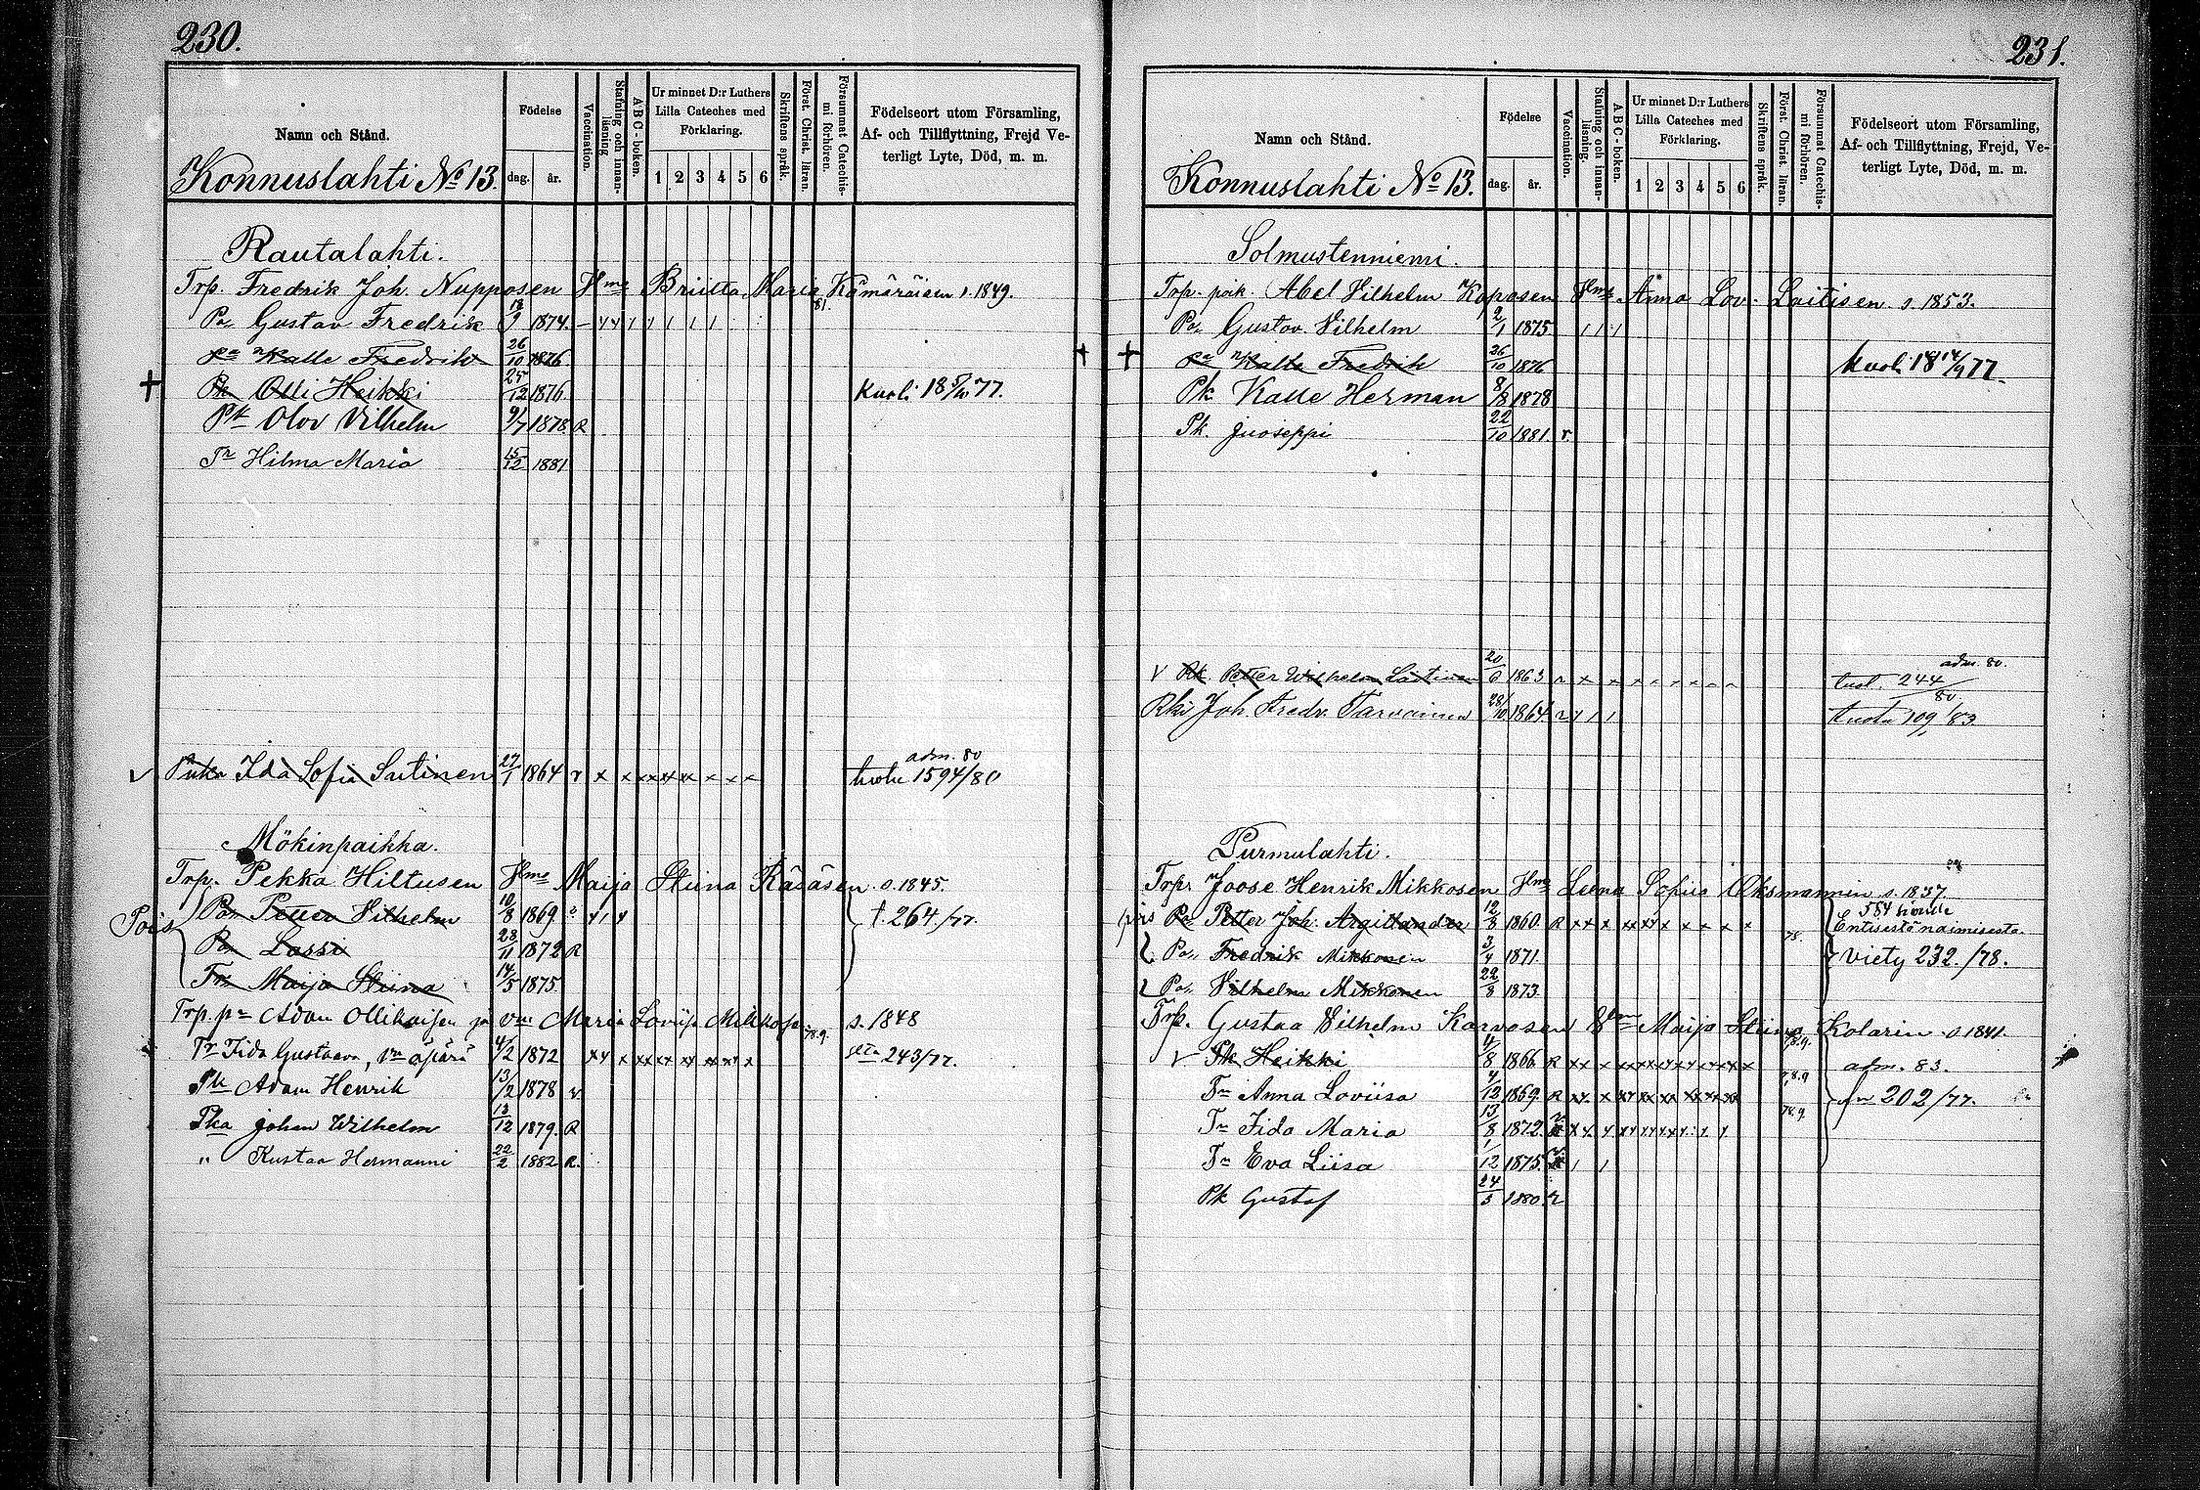 230.
Namn och Stånd.
Födelse
dag. år.
Vaccination.
Stafning och innanläsning
ABC-boken.
Ur minnet D:r Luthers
Lilla Cateches med
Förklaring.
1 2 3 4 5 6
Skriftens språk.
Först. Christ. läran.
Försummat Catechismi förhören.
Födelseort utom Församling,
Af- och Tillflyttning, Frejd Ve-
terligt Lyte, Död, m. m.
Konnuslahti No 13.
Rautalahti.
Trp. Fredrik Joh. Nupposen Hme Briitta Maria Kämäräisen s. 1849.
Po. Gustav Fredrik 18/9 1874. 81.
Po Kalle Fredrik 26/10 1876
Pk Olli Heikki 25/12 1876 Kuoli 18 77.
Pk Olov Vilhelm 9/7 1878 R
Tr Hilma Maria 15/12 1881
adm. 80
Ida Sofia Sutinen 27/1 1864 r 1594/80
Mökinpaikka.
Trp. Pekka Hiltusen Hme Maija Stiina Räsäsen s. 1845.
Pois
Po. Petter Vilhelm 10/8 1869 t. 264./77.
Po. Lassi 28/11 1872 R
Tr. Maija Stiina 14/5 1875.
Trp. pn Adam Ollikaisen ja vm Maria Lovisa Mikkos s. 1848
78.9.
Tr Fida Gustaava, vn äpärä 4/2 1872 243/77.
Pk Adam Henrik 13/2 1878 v
Pka Johan Wilhelm 13/12 1879. R
" Kustaa Hermanni 22/2 1882 R.
231.
Namn och Stånd.
Födelse
dag. år.
Vaccination.
Stafning och innanläsning.
ABC-boken.
Ur minnet D:r Luthers
Lilla Cateches med
Förklaring.
1 2 3 4 5 6
Skriftens språk.
Först. Christ. läran.
Försummat Catechismi förhören.
Födelseort utom Församling,
Af- och Tillflyttning, Frejd, Ve-
terligt Lyte, Död, m. m.
Konnuslahti No 13.
Solmustenniemi.
Trp. poik. Abel Vilhelm Koposen Hme Anna Lov. Laitisen s. 1853.
Po. Gustav Vilhelm 2/1 1875
Po Kalle Fredrik 26/10 1876 Kuoli 18 14/9 77.
Pk. Kalle Herman 8/8 1878
Pk. Juoseppi 22/10 1881. r.
adm. 80.
V Rk. Petter Wilhelm Laitinen 20/6 1863 244/80
Rki Joh. Fredr. Tarvainen 28/10 1864 109/83
Purmulahti.
Trp. Joose Henrik Mikkosen Hme Leena Sofia Oksmannin s. 1837
584
pois Po Petter Joh. Argillander 12/8 1860. R Entisestä naimisesta.
78.
Po. Fredrik Mikkonen 3/4 1871. viety 232./78.
Po. Vilhelm Mikkonen 22/8 1873
Trp. Gustaa Vilhelm Karvosen Hme Maija Stiina Kolarin s. 1841.
78.9.
V Pk Heikki 4/8 1866 R adm. 83.
7.8.9
Tr Anna Loviisa 4/12 1869. R 202/77.
78.9.
Tr Fida Maria 13/8 1872.
Tr Eva Liisa 1/12 1875.
Pk Gustaf 24/5 1880. r